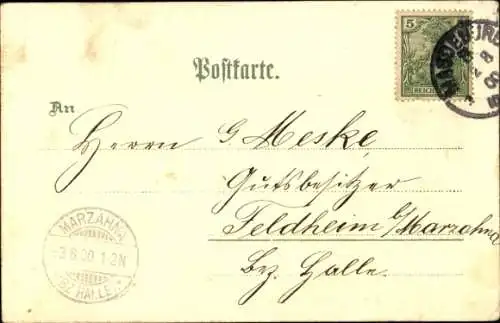 5
REICH
Postkarte.
An
Herrn G. Meske
Gutsbesitzer
Feldheim b/Marzahna
Bez. Halle.
MARZAHNA
3.6.00. 1-2N
(BZ. HALLE)